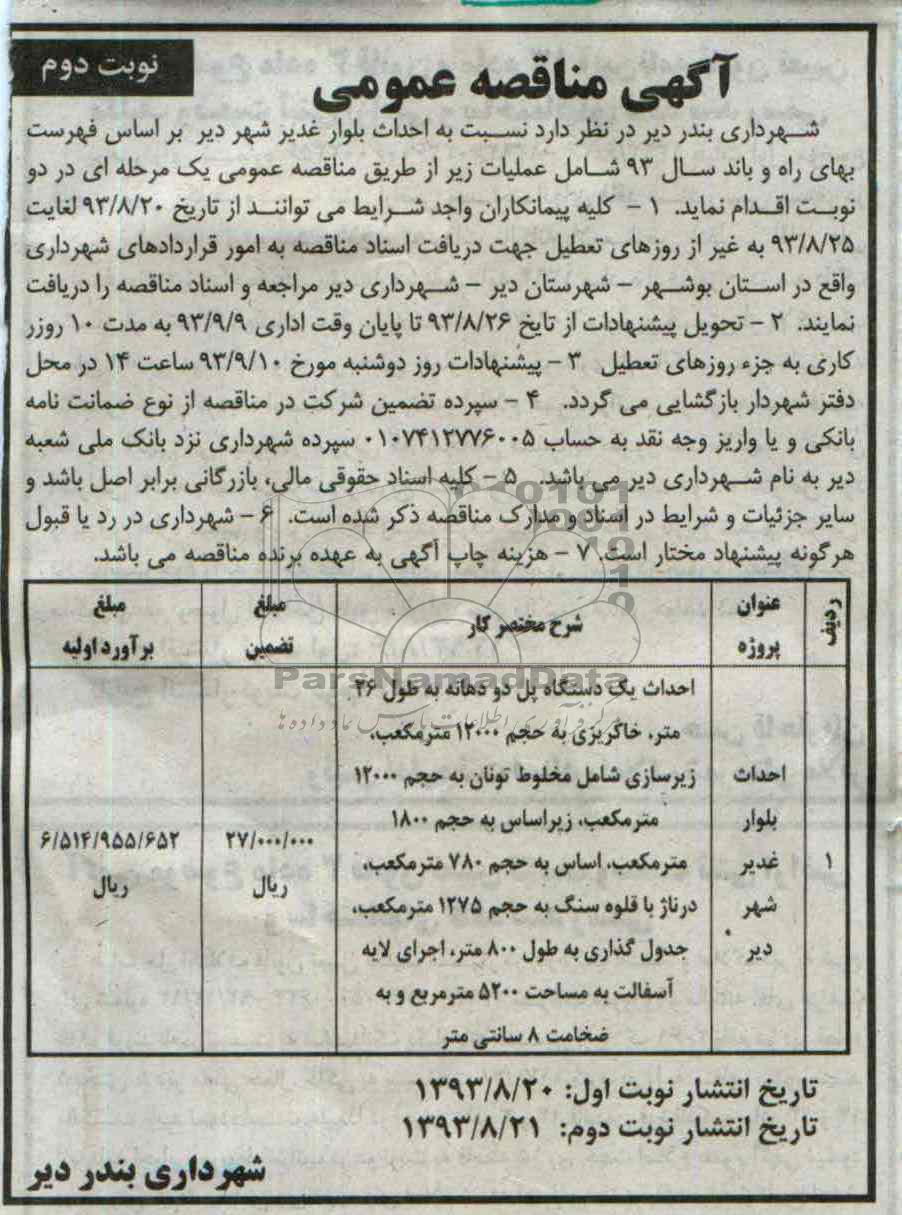 نوبت دوم
آگهی مناقصه عمومی
شهرداری بندر دیر در نظر دارد نسبت به احداث بلوار غدیر شهر دیر بر اساس فهرست
بهای راه و باند سال ۹۳ شامل عملیات زیر از طریق مناقصه عمومی یک مرحله ای در دو
نوبت اقدام نماید. ۱ - کلیه پیمانکاران واجد شرایط می توانند از تاریخ ۹۳/۸/۲۰ لغایت
۹۳/۸/۲۵ به غیر از روزهای تعطیل جهت دریافت اسناد مناقصه به امور قراردادهای شهرداری
واقع در استان بوشهر - شهرستان دیر - شهرداری دیر مراجعه و اسناد مناقصه را دریافت
نمایند. ۲ - تحویل پیشنهادات از تایخ ۹۳/۸/۲۶ تا پایان وقت اداری ۹۳/۹/۹ به مدت ۱۰ روزر
کاری به جزء روزهای تعطیل ۳ - پیشنهادات روز دوشنبه مورخ ۹۳/۹/۱۰ ساعت ۱۴ در محل
دفتر شهردار بازگشایی می گردد. ۴ - سپرده تضمین شرکت در مناقصه از نوع ضمانت نامه
بانکی و یا واریز وجه نقد به حساب ۰۱۰۷۴۱۲۷۷۶۰۰۵ سپرده شهرداری نزد بانک ملی شعبه
دیر به نام شهرداری دیر می باشد. ۵ - کلیه اسناد حقوقی مالی، بازرگانی برابر اصل باشد و
سایر جزئیات و شرایط در اسناد و مدارک مناقصه ذکر شده است. ۶ - شهرداری در رد یا قبول
هرگونه پیشنهاد مختار است. ۷ - هزینه چاپ آگهی به عهده برنده مناقصه می باشد.
ردیف عنوان پروژه شرح مختصر کار مبلغ تضمین مبلغ برآورد اولیه
احداث یک دستگاه پل دو دهانه به طول ۲۶
متر، خاکریزی به حجم ۱۲۰۰۰ مترمکعب،
احداث زیرسازی شامل مخلوط تونان به حجم ۱۲۰۰۰
بلوار مترمکعب، زیراساس به حجم ۱۸۰۰
۱ غدیر مترمکعب، اساس به حجم ۷۸۰ مترمکعب، ۲۷/۰۰۰/۰۰۰ ریال ۶/۵۱۴/۹۵۵/۶۵۲ ریال
شهر درناژ با قلوه سنگ به حجم ۱۲۷۵ مترمکعب،
دیر جدول گذاری به طول ۸۰۰ متر، اجرای لایه
آسفالت به مساحت ۵۲۰۰ مترمربع و به
ضخامت ۸ سانتی متر
تاریخ انتشار نوبت اول: ۱۳۹۳/۸/۲۰
تاریخ انتشار نوبت دوم: ۱۳۹۳/۸/۲۱
شهرداری بندر دیر
ParsNamadData